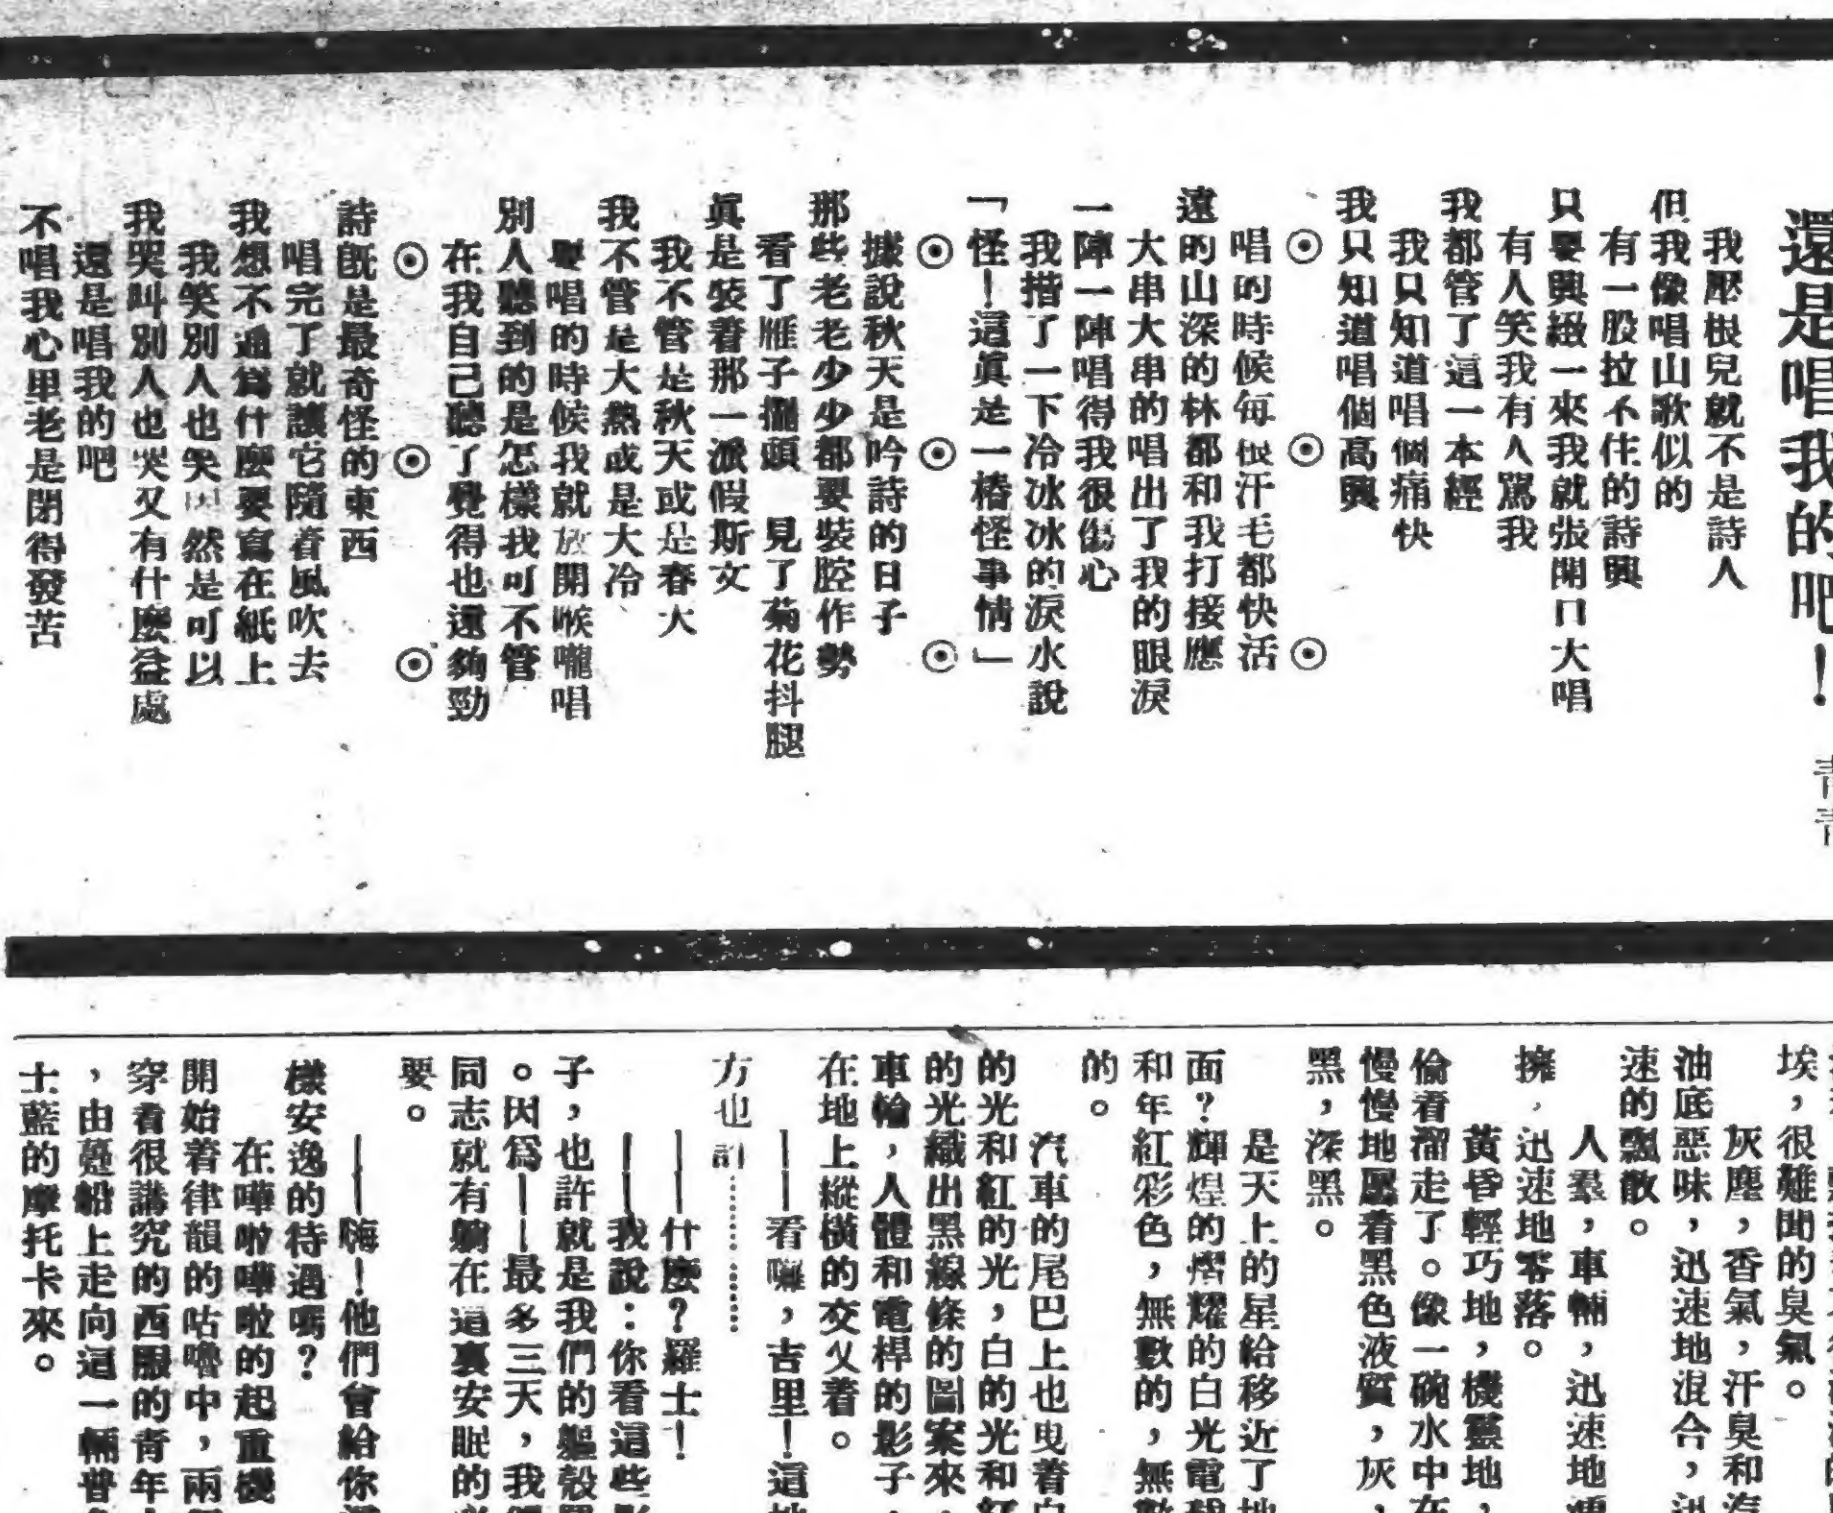 還是唱我的吧！
青青
我壓根兒就不是詩人
但我像唱山歌似的
有一股拉不住的詩興
只要興緻一來我就張開口大唱
有人笑我有人罵我
我都管了這一本經
我只知道唱個痛快
我只知道唱個高興
⊙ ⊙ ⊙
唱的時候每根汗毛都快活
遠的山深的林都和我打接應
大串大串的唱出了我的眼淚
一陣一陣唱得我很傷心
我揩了一下冷冰冰的淚水說
「怪！這眞是一樁怪事情」
⊙ ⊙ ⊙
據說秋天是吟詩的日子
那些老老少少都要裝腔作勢
看了雁子擺頭　見了菊花抖腿
眞是裝着那一派假斯文
我不管是秋天或是春天
我不管是大熱或是大冷
要唱的時候我就放開喉嚨唱
別人聽到的是怎樣我可不管
在我自己聽了覺得也還夠勁
⊙ ⊙ ⊙
詩旣是最奇怪的東西
唱完了就讓它隨着風吹去
我想不通爲什麼要寫在紙上
我笑別人也笑固然是可以
我哭叫別人也哭又有什麼益處
還是唱我的吧
不唱我心里老是閉得發苦
埃，很難聞的臭氣。
灰塵，香氣，汗臭和汽
油底惡味，迅速地混合，迅
速的飄散。
人羣，車輛，迅速地
擁，迅速地零落。
黃昏輕巧地，機靈地，
偷着溜走了。像一碗水中在
慢慢地展着黑色液質，灰，
黑，深黑。
是天上的星給移近了地
面？輝煌的熠耀的白光電
和年紅彩色，無數的，無數
的。
汽車的尾巴上也曳着白
的光和紅的光，白的光和紅
的光織出黑線條的圖案來，
車輪，人體和電桿的影子，
在地上縱橫的交乂着。
——看囉，吉里！這地
方也許…………
——什麼？羅士！
——我說：你看這些影
子，也許就是我們的軀殼
。因爲——最多三天，我
同志就有躺在這裏安眠的必
要。
——嗨！他們會給你這
樣安逸的待遇嗎？
在嘩啦嘩啦的起重機
開始着律韻的咕嚕中，兩
穿着很講究的西服的青年
，由躉船上走向這一輛普
士藍的摩托卡來。